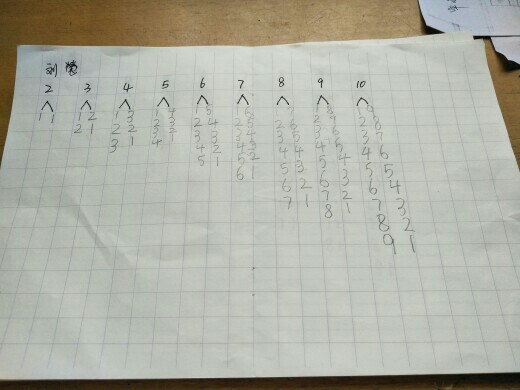 刘
2 3 4 5 6 7 8 9 10
1 1 1 2 1 3 1 4 1 5 1 6 1 7 1 8 1 9
2 1 2 2 2 3 2 4 2 5 2 6 2 7 2 8
3 1 3 2 3 3 3 4 3 5 3 6 3 7
4 1 4 2 4 3 4 4 4 5 4 6
5 1 5 2 5 3 5 4 5 5
6 1 6 2 6 3 6 4
7 1 7 2 7 3
8 1 8 2
9 1